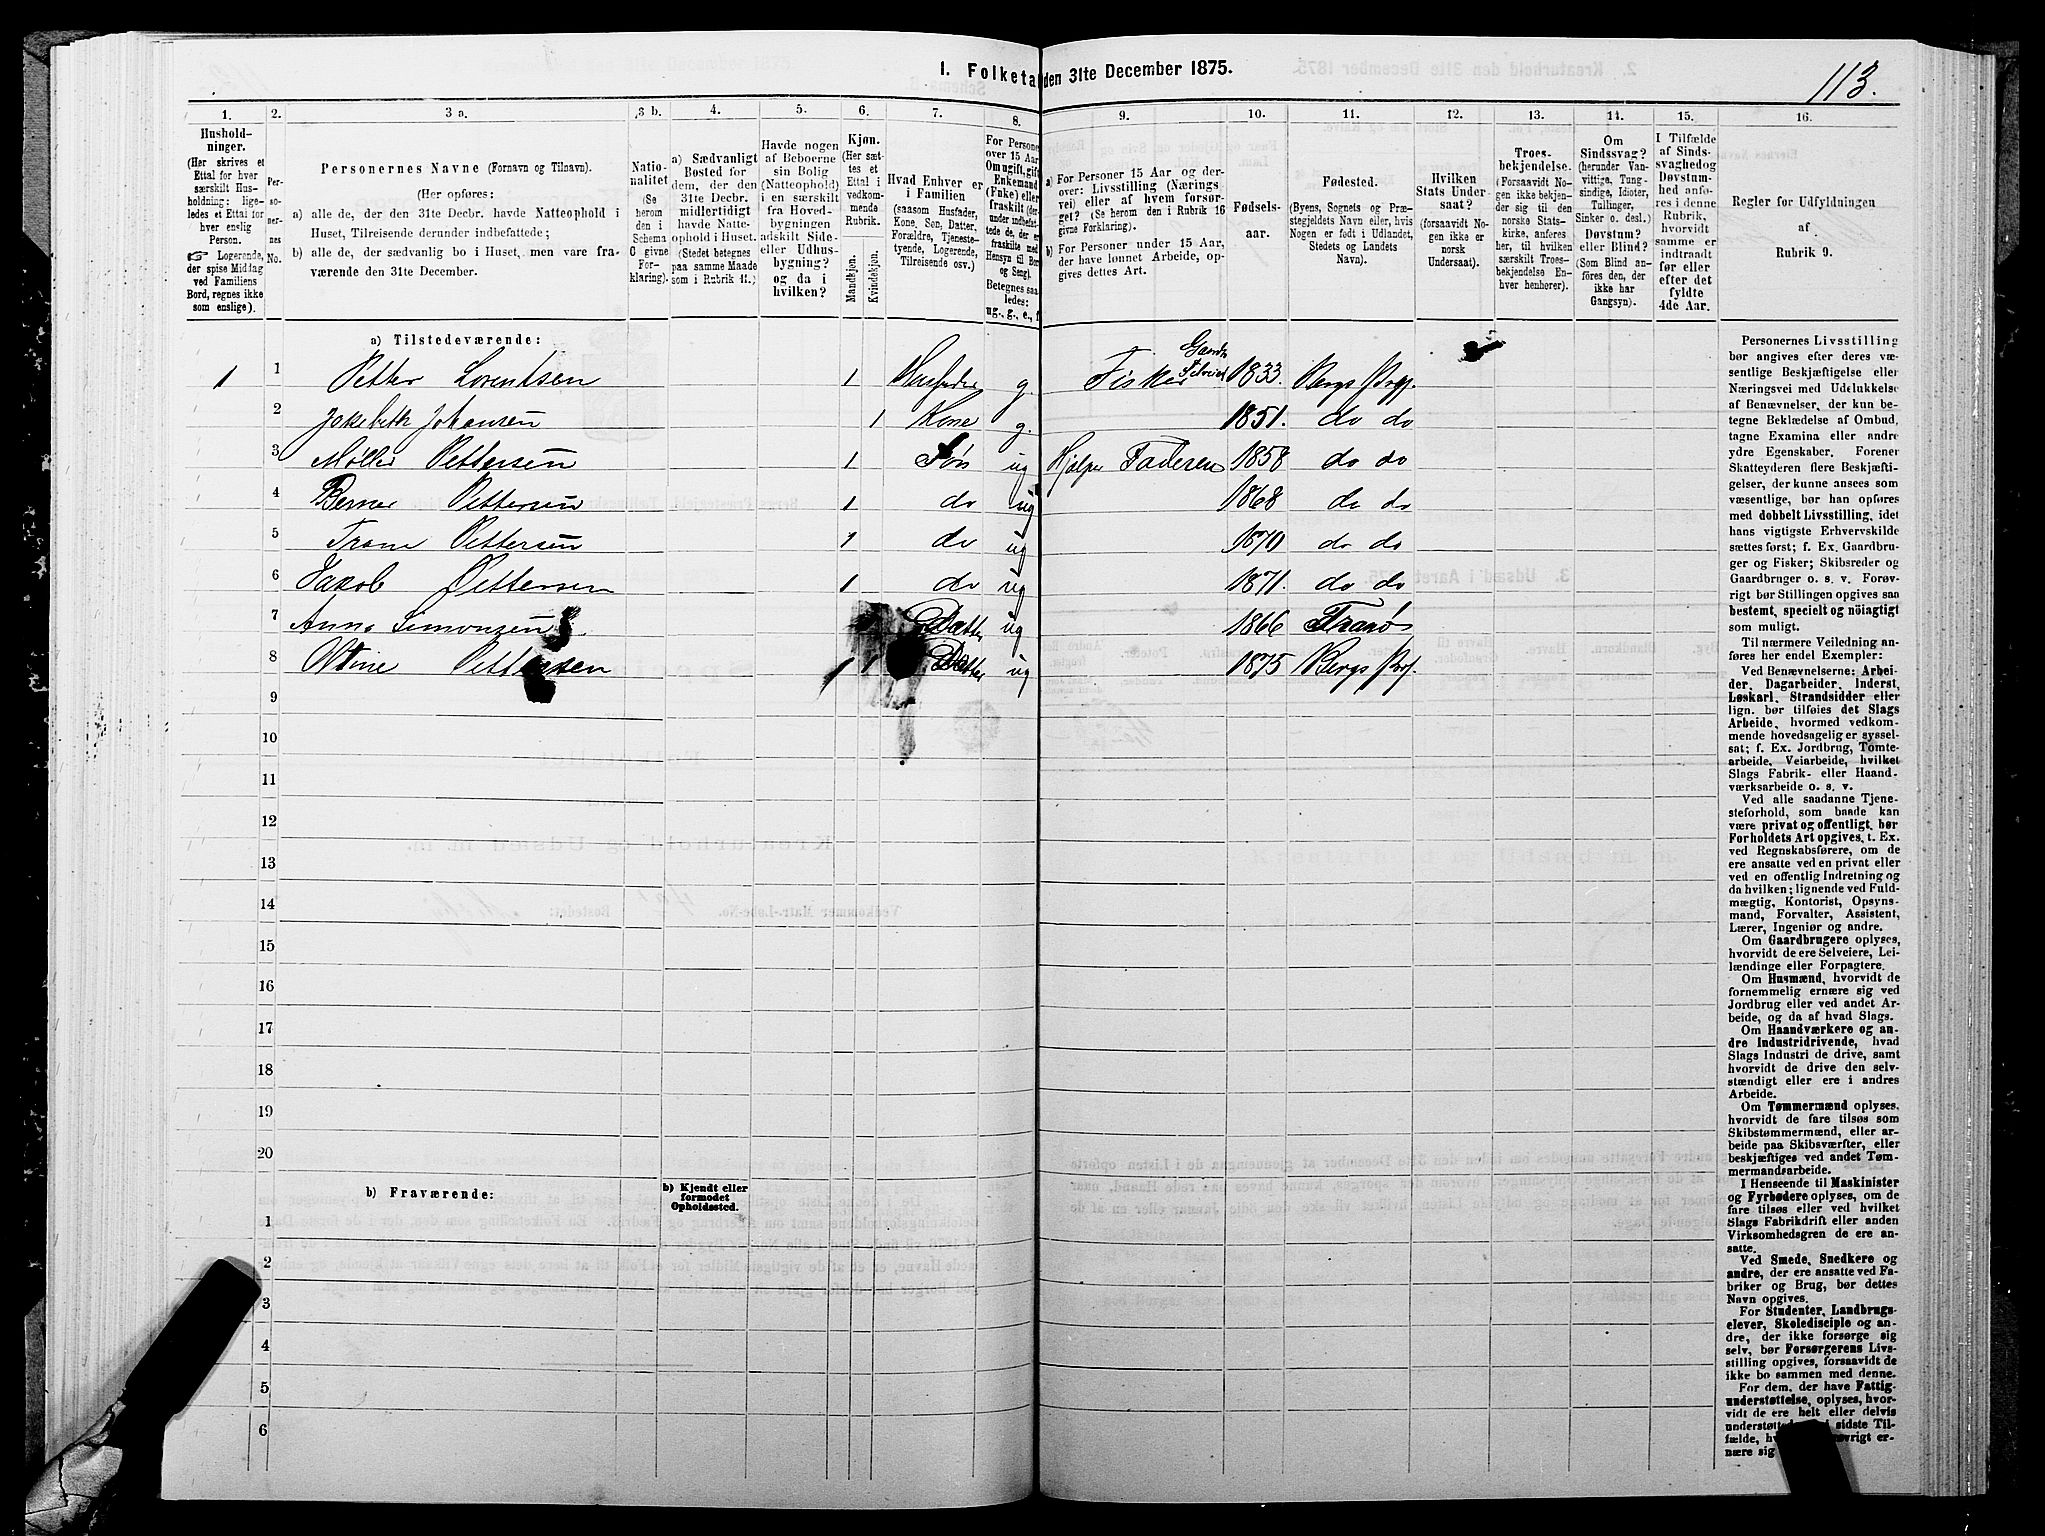 1. Folketal den 31te December 1875.
113.
1.
Hushold-
ninger.
(Her skrives et
Ettal for hver
særskilt Hus-
holdning; lige-
ledes et Ettal for
hver enslig
Person.
Logerende,
der spise Middag
ved Familiens
Bord, regnes ikke
som enslige).
2.
Per-
so-
ner-
nes
No.
3 a.
Personernes Navne (Fornavn og Tilnavn).
(Her opføres:
a) alle de, der den 31te Decbr. havde Natteophold i
Huset, Tilreisende derunder indbefattede;
b) alle de, der sædvanlig bo i Huset, men vare fra-
værende den 31te December.
3 b.
Natio-
nalitet
(Se
herom
den i
Schema
6 givne
For-
klaring).
4.
a) Sædvanligt
Bosted for
dem, der den
31te Decbr.
midlertidigt
havde Natte-
ophold i Huset.
(Stedet betegnes
paa samme Maade
som i Rubrik 11.)
5.
Havde nogen
af Beboerne
sin Bolig
(Natteophold)
i en særskilt
fra Hoved-
bygningen
adskilt Side-
eller Udhus-
bygning?
og da i
hvilken?
6.
Kjøn.
(Her sæt-
tes et
Ettal i
vedkom-
mende
Rubrik.
Mandkjøn.
Kvindekjøn.
7.
Hvad Enhver er
i Familien
(saasom Husfader,
Kone, Søn, Datter,
Forældre, Tjeneste-
tyende, Logerende,
Tilreisende osv.)
8.
For Personer
over 15 Aar:
Om ugift, gift,
Enkemand
(Enke) eller
fraskilt (der-
under indbefat-
tede de, der ere
fraskilte med
Hensyn til Bord
og Seng).
Betegnes saa-
ledes:
ug., g., e., f.
9.
a) For Personer 15 Aar og der-
over: Livsstilling (Nærings-
vei) eller af hvem forsør-
get? (Se herom den i Rubrik 16
givne Forklaring).
b) For Personer under 15 Aar,
der have lønnet Arbeide, op-
gives dettes Art.
10.
Fødsels-
aar.
11.
Fødested.
(Byens, Sognets og Præ-
stegjeldets Navn eller, hvis
Nogen er født i Udlandet,
Stedets og Landets
Navn).
12.
Hvilken
Stats Under-
saat?
(forsaavidt No-
gen ikke er
norsk
Undersaat).
13.
Troes-
bekjendelse.
(Forsaavidt No-
gen ikke bekjen-
der sig til den
norske Stats-
kirke, anføres
her, til hvilken
særskilt Troes-
bekjendelse En-
hver henhører).
14.
Om
Sindssvag?
(herunder Van-
vittige, Tung-
sindige, Idioter,
Tullinger,
Sinker o. desl.)
Døvstum?
eller Blind?
(Som Blind an-
føres den, der
ikke har
Gangsyn).
15.
I Tilfælde
af Sinds-
svaghed og
Døvstum-
hed anfø-
res i denne
Rubrik,
hvorvidt
samme er
indtraadt
før eller
efter det
fyldte
4de Aar.
16.
Regler for Udfyldningen
af
Rubrik 9.
a) Tilstedeværende:
1 1 Petter Lorentsen 1 Husfader g. Fisker Gaardb. 1833. Bergs Prgj.
2 Johansen 1 Kone g. 1851. do do
3 Møller Pettersen 1 Søn ug Hjælper Faderen 1858 do do
4 Berner Pettersen 1 do ug 1868 do do
5 Trane Pettersen 1 do ug 1870 do do
6 Jakob Pettersen 1 do ug 1871. do do
7 Anna Simonsen Datter ug 1866 Tranø
8 Pettersen 1 1 Datter ug 1875 Bergs Prgj.
9
10
11
12
13
14
15
16
17
18
19
20
b) Fraværende:
b) Kjendt eller
formodet
Opholdssted.
1
2
3
4
5
6
Personernes Livsstilling
bør angives efter deres væ-
sentlige Beskjæftigelse eller
Næringsvei med Udelukkelse
af Benævnelser, der kun be-
tegne Beklædelse af Ombud,
tagne Examina eller andre
ydre Egenskaber. Forener
Skatteyderen flere Beskjæfti-
gelser, der kunne ansees som
væsentlige, bør han opføres
med dobbelt Livsstilling, idet
hans vigtigste Erhvervskilde
sættes først; f. Ex. Gaardbru-
ger og Fisker; Skibsreder og
Gaardbruger o. s. v. Forøv-
rigt bør Stillingen opgives saa
bestemt, specielt og nöiagtigt
som muligt.
Til nærmere Veiledning an-
føres her endel Exempler:
Ved Benævnelserne: Arbei-
der, Dagarbeider, Inderst,
Løskarl, Strandsidder eller
lign. bør tilføies det Slags
Arbeide, hvormed vedkom-
mende hovedsagelig er syssel-
sat; f. Ex. Jordbrug, Tømte-
arbeide, Veiarbeide, hvilket
Slags Fabrik- eller Haand-
værksarbeide o. s. v.
Ved alle saadanne Tjene-
steforhold, som baade kan
være privat og offentligt, bør
Forholdets Art opgives, t. Ex.
ved Regnskabsførere, om de
ere ansatte ved en privat eller
ved en offentlig Indretning og
da hvilken; lignende ved Fuld-
mægtig, Kontorist, Opsyns-
mand, Forvalter, Assistent,
Lærer, Ingeniør og andre.
Om Gaardbrugere oplyses,
hvorvidt de ere Selveiere, Lei-
lændinge eller Forpagtere.
Om Husmænd, hvorvidt de
fornemmelig ernære sig ved
Jordbrug eller ved andet Ar-
beide, og da af hvad Slags.
Om Haandværkere og an-
dre Industridrivende, hvad
Slags Industri de drive, samt
hvorvidt de drive den selv-
stændigt eller ere i andres
Arbeide.
Om Tømmermænd oplyses,
hvorvidt de fare tilsøs som
Skibstømmermænd, eller ar-
beide paa Skibsværfter, eller
beskjæftiges ved andet Tøm-
mermandsarbeide.
I Henseende til Maskinister
og Fyrbødere oplyses, om de
fare tilsøs eller ved hvilket
Slags Fabrikdrift eller anden
Virksomhedsgren de ere an-
satte.
Ved Smede, Snedkere og
andre, der ere ansatte ved Fa-
briker og Brug, bør dettes
Navn opgives.
For Studenter, Landbrugs-
elever, Skoledisciple og an-
dre, der ikke forsørge sig
selv, bør Forsørgerens Livs-
stilling opgives, forsaavidt de
ikke bo sammen med denne.
For dem, der have Fattig-
understøttelse, oplyses, hvor-
vidt de ere helt eller delvis
understøttede i sidste Til-
fælde, øvrigt er-
nære sig